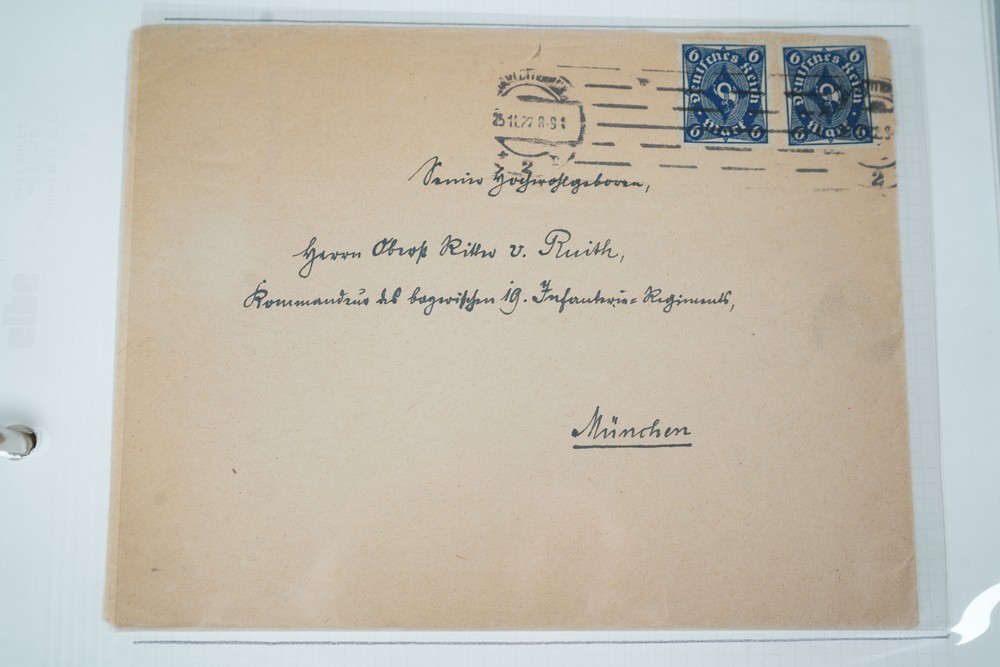 6 6
Deutsches Reich
Mark
6 6
6 6
Deutsches Reich
Mark
6 6
25.11.22 8-9 V
2
2
Seiner Hochwohlgeboren,
Herrn Oberst Ritter v. Ruith,
Kommandeur des bayerischen 19. Infanterie-Regiments,
München